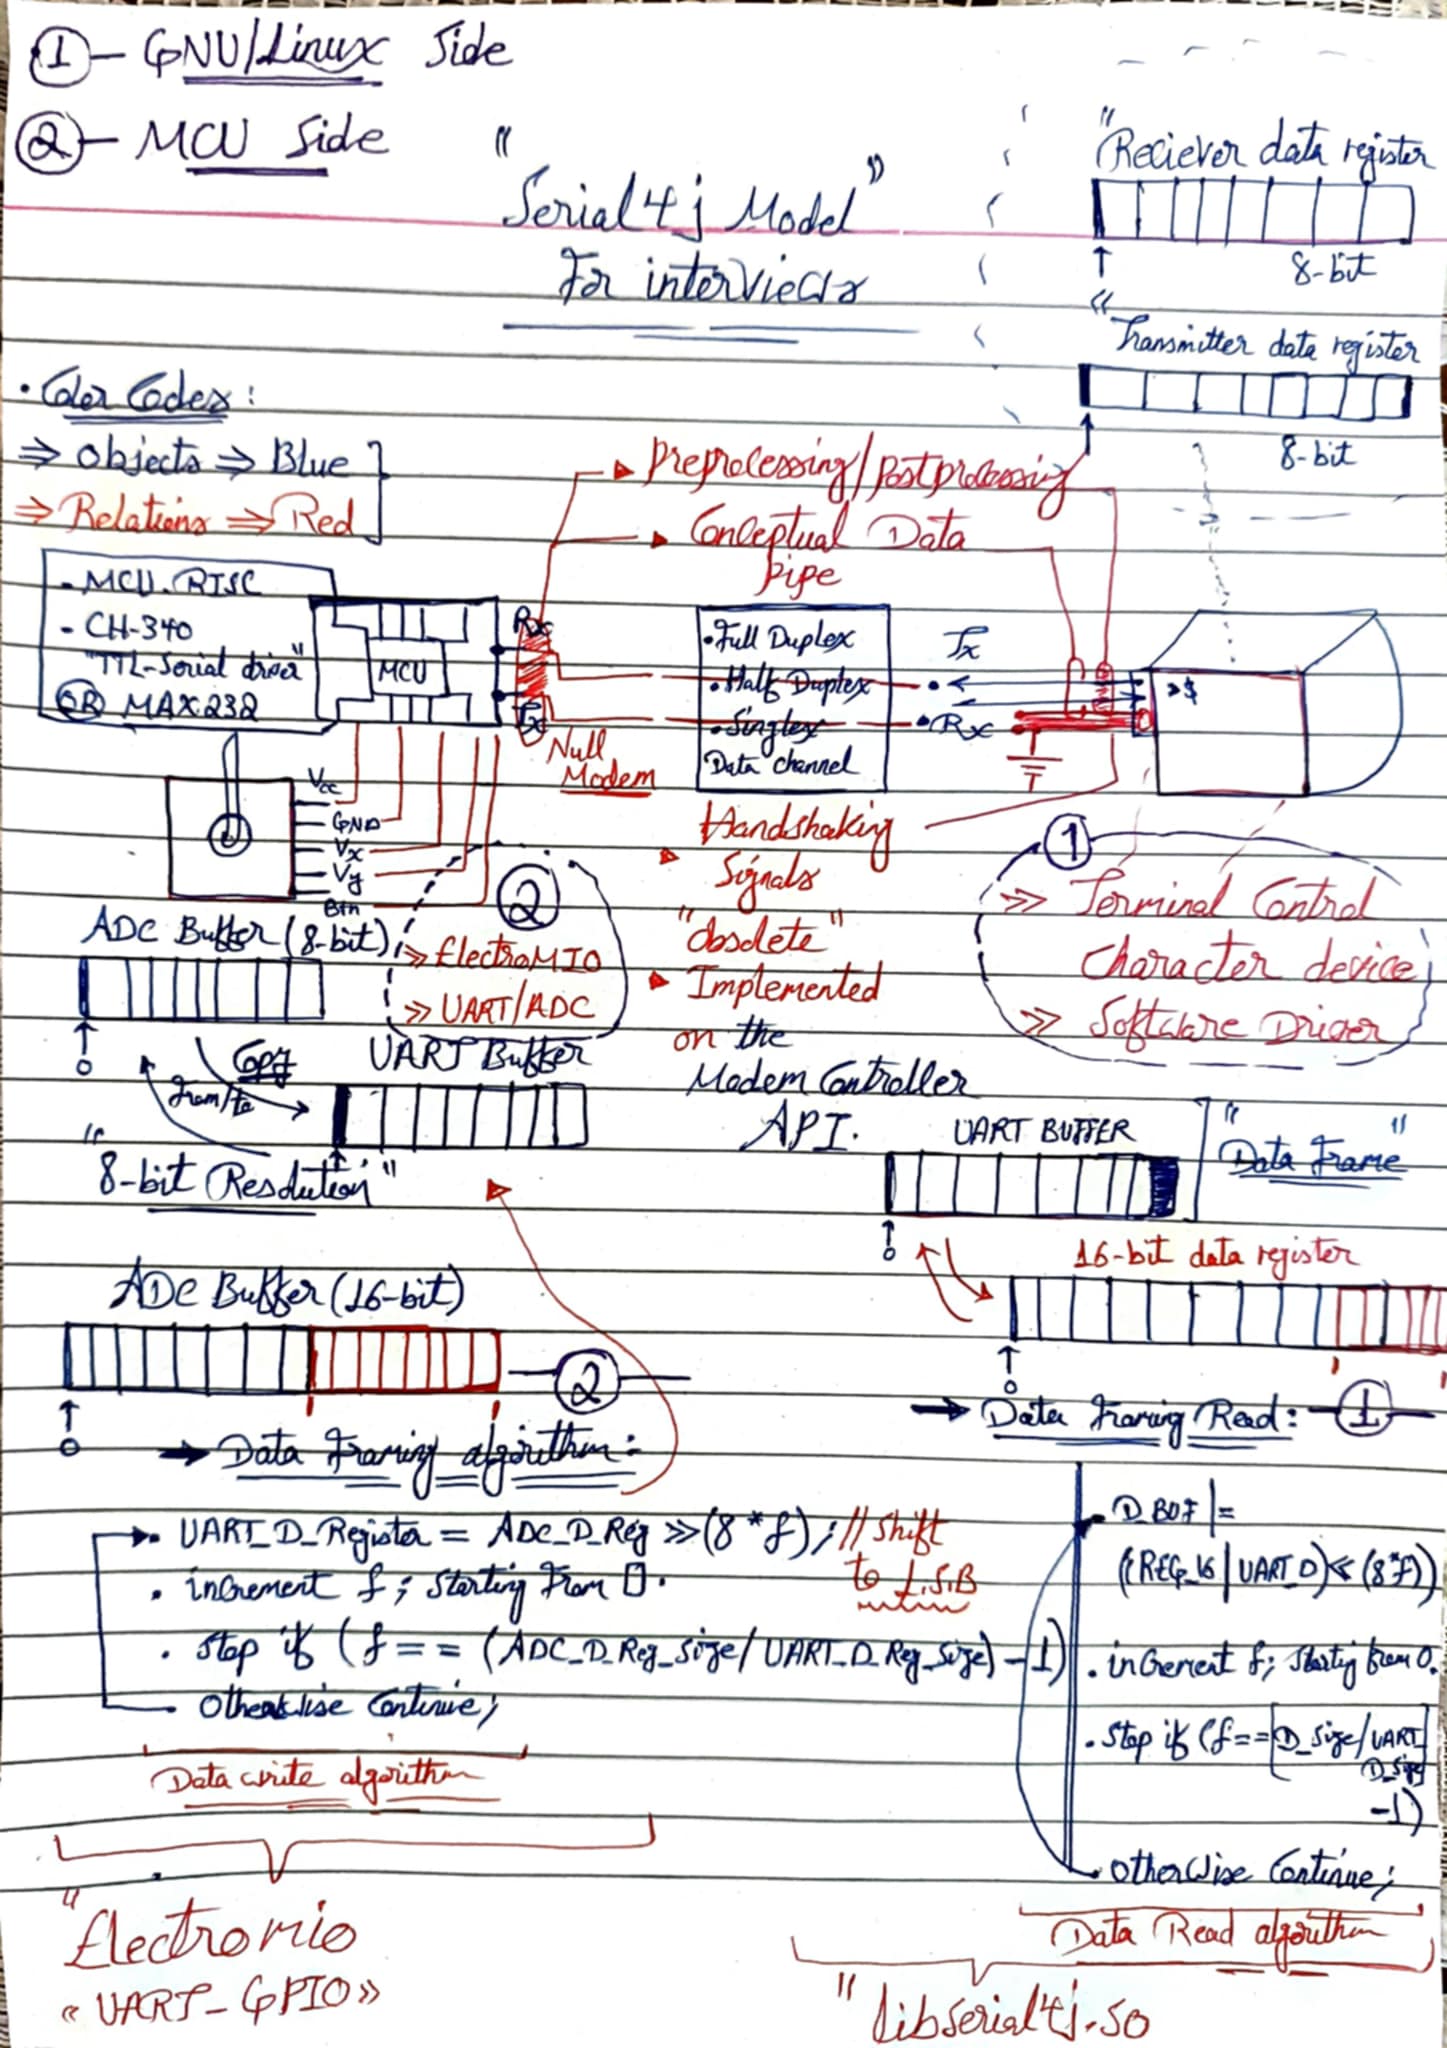 1 - GNU/Linux Side
2 - MCU Side
"Serial4j Model"
For interviews
"Reciever data register
8-bit
"Transmitter data register
8-bit
• Color Codes:
⇒ Objects ⇒ Blue
⇒ Relations ⇒ Red
Preprocessing/postprocessing
Conceptual Data
pipe
- MCU.RISC
- CH-340
"TTL-Serial driver"
OR MAX232
MCU
Rx
Tx
Null
Modem
• Full Duplex
• Half Duplex
• Singlex
Data channel
Tx
Rx
>$
Vcc
GND
Vx
Vy
Btn
Handshaking
Signals
"obsolete"
Implemented
on the
Modem Controller
API.
1
>> Terminal Control
Character device
>> Software Driver
2
>> ElectroMIO
>> UART/ADC
ADC Buffer (8-bit)
0
Copy
from/to
UART Buffer
"8-bit Resolution"
UART BUFFER
"Data Frame"
0
16-bit data register
0
ADC Buffer (16-bit)
2
0
→ Data Framing Read: 1
→ Data Framing algorithm:
• UART_D_Register = ADC_D_Reg >> (8 * f); // Shift
to L.S.B
• increment f; starting from 0.
• stop if (f == (ADC_D_Reg_Size/UART_D_Reg_Size) - 1)
Otherwise Continue;
Data write algorithm
"Electromio
«UART_GPIO»
• D_BUF |=
((REG_16 | UART_D) << (8*f))
• increment f; starting from 0.
• stop if (f == [D_Size/UART
D_Size]
-1)
• otherwise Continue;
Data Read algorithm
"libserial4j.so